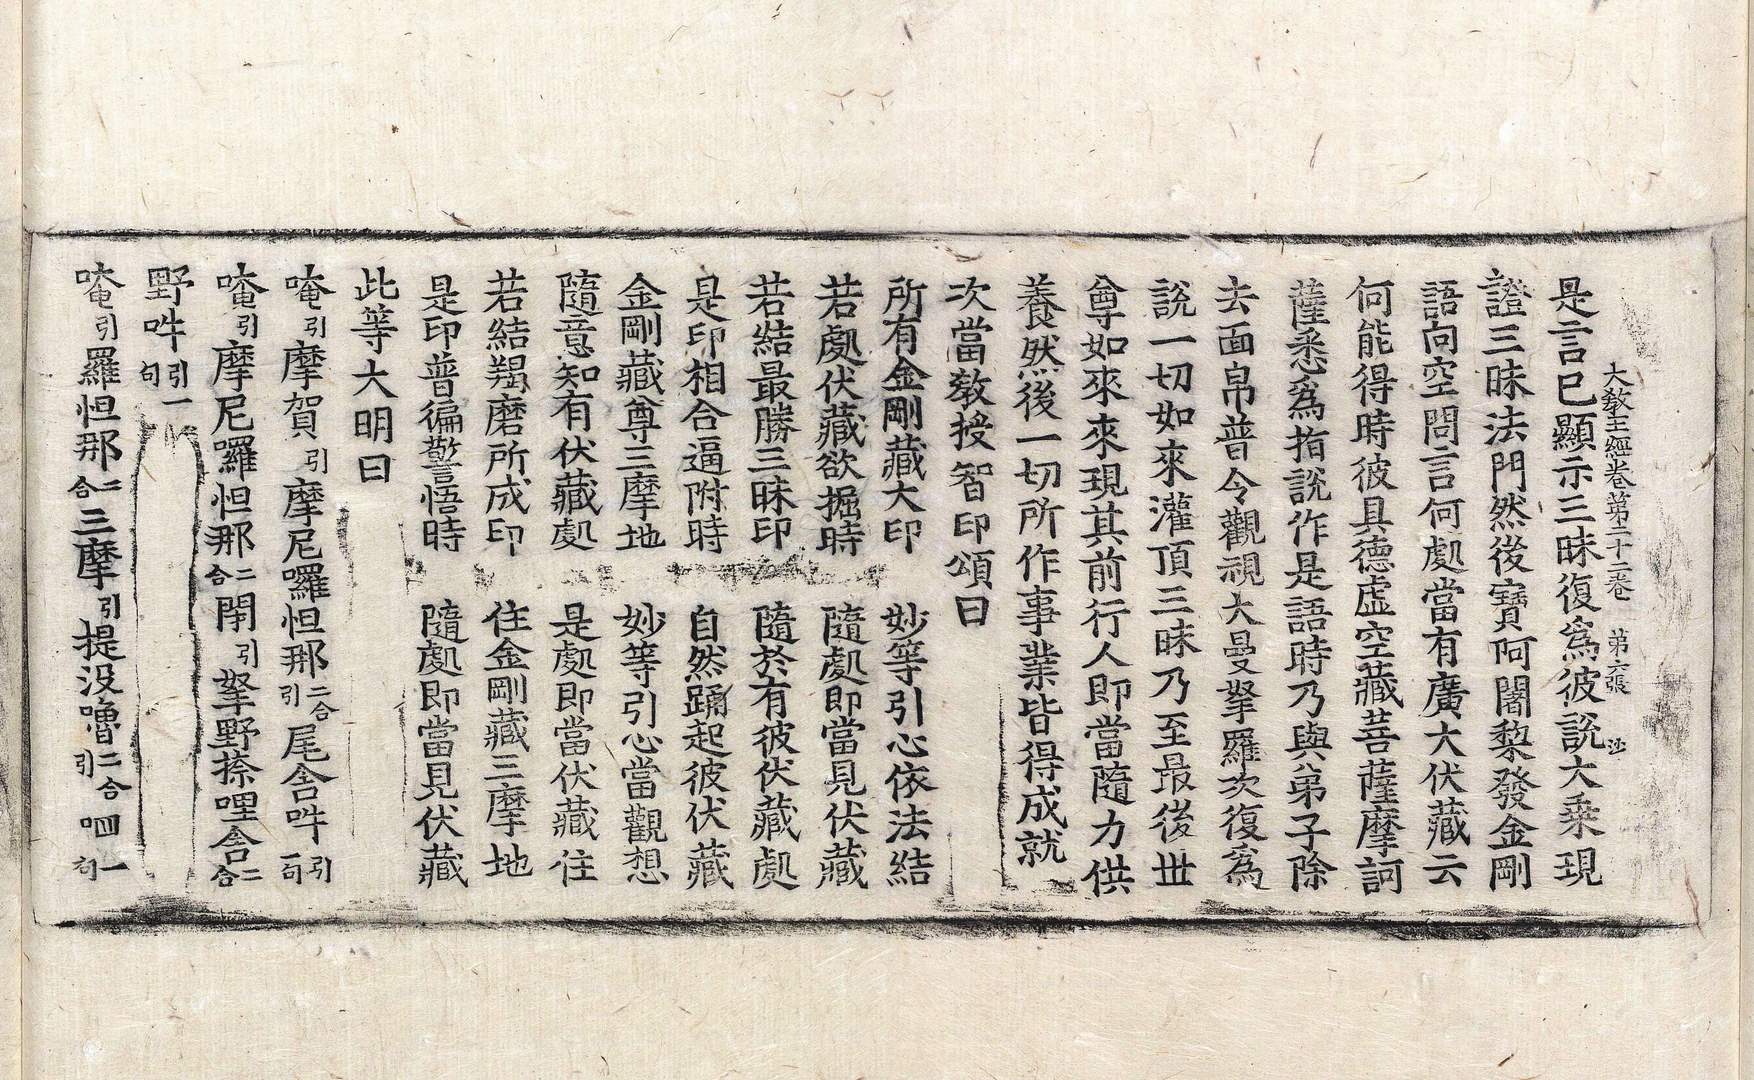 大敎王經卷第二十二卷 第六張 沙
是言已顯示三昧復爲彼說大乗現
證三昧法門然後寶阿闍棃發金剛
語向空問言何處當有廣大伏藏云
何能得時彼具德虛空藏菩薩摩訶
薩悉爲指說作是語時乃與弟子除
去面帛普令觀視大曼拏羅次復爲
說一切如來灌頂三昧乃至最後世
尊如來來現其前行人即當隨力供
養然後一切所作事業皆得成就
次當敎授智印頌曰
所有金剛藏大印 妙等引心依法結
若處伏藏欲掘時 隨處即當見伏藏
若結最勝三昧印 隨於有彼伏藏處
是印相合逼附時 自然踊起彼伏藏
金剛藏尊三摩地 妙等引心當觀想
隨意知有伏藏處 是處即當伏藏住
若結羯磨所成印 住金剛藏三摩地
是印普徧警悟時 隨處即當見伏藏
此等大明曰
唵引摩賀引摩尼囉怛那二合引尾舍吽引一句
唵引摩尼囉怛那二合閉引拏野捺哩舍二合
野吽引一句
唵引羅怛那二合三摩引提没嚕二合引呬一句